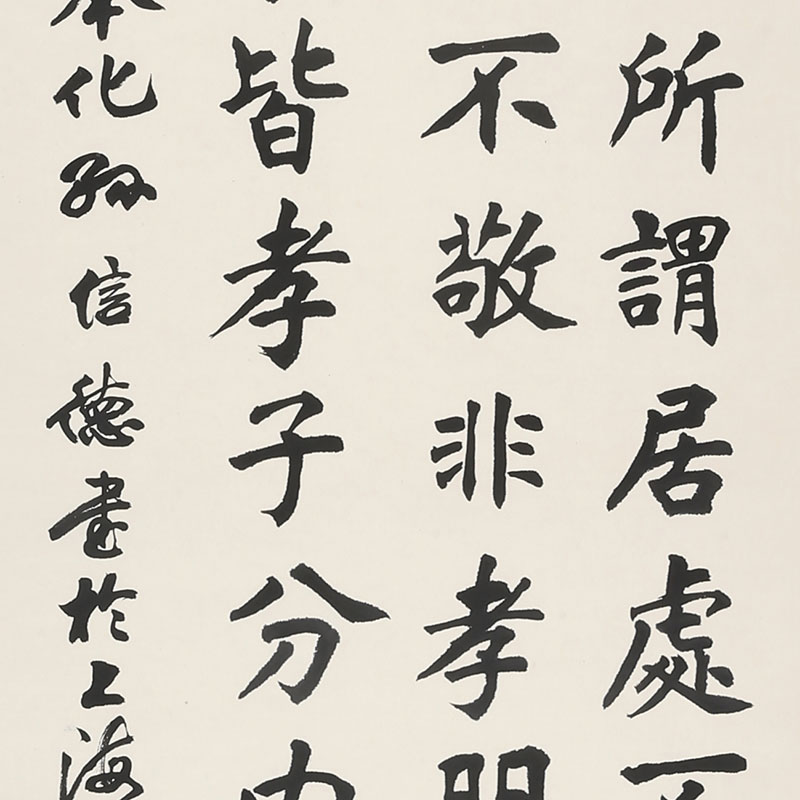 所謂居處不
不敬非孝朋
皆孝子分内
奉化孫信德書於上海